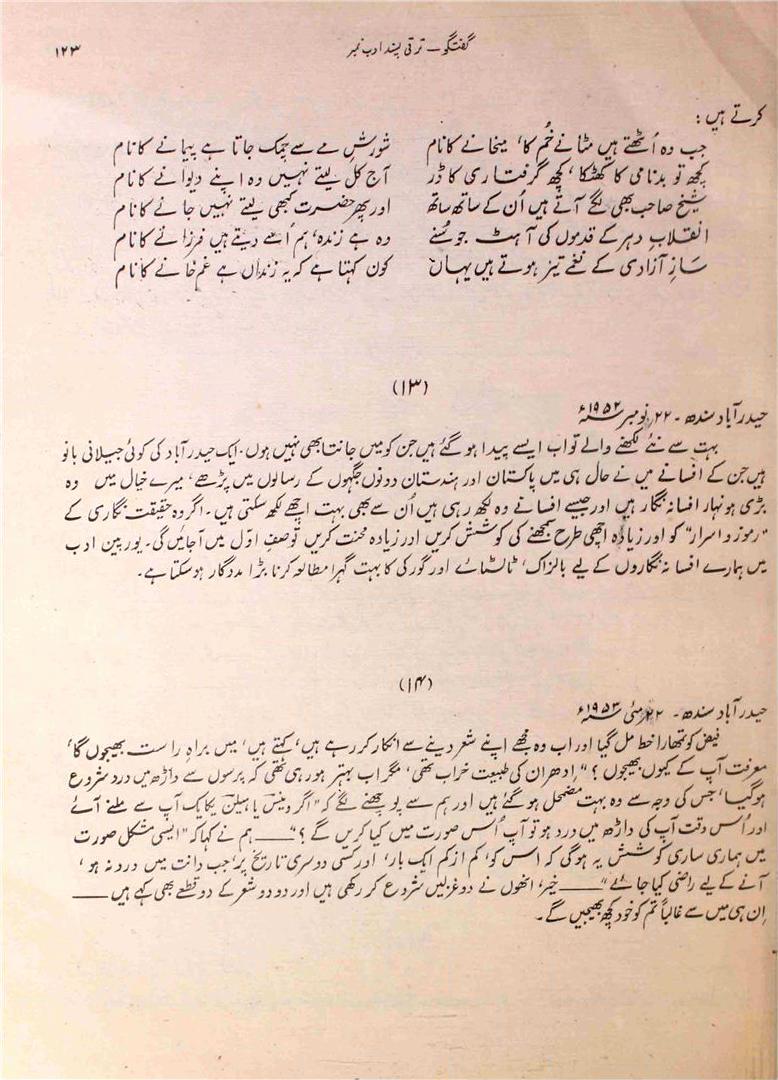 گفتگو۔ ترقی پسند ادب نمبر
۱۲۳
کرتے ہیں :
جب وہ اُٹھتے ہیں مٹانے خُم کا، میخانے کا نام شورشِ مے سے چمک جاتا ہے پیمانے کا نام
کچھ تو بدنامی کا کھٹکا، کچھ گرفتاری کا ڈر آج کل لیتے نہیں وہ اپنے دیوانے کا نام
شیخ صاحب بھی لگے آتے ہیں اُن کے ساتھ ساتھ اور پھر حضرت کبھی لیتے نہیں جانے کا نام
انقلابِ دہر کے قدموں کی آہٹ جو سُنے وہ ہے زندہ، ہم اُسے دیتے ہیں فرزانے کا نام
سازِ آزادی کے نغمے تیز ہوتے ہیں یہاں کون کہتا ہے کہ یہ زنداں ہے غم خانے کا نام
(۱۳)
حیدرآباد سندھ۔ ۲۲ نومبر ۱۹۵۲ء
بہت سے نئے لکھنے والے تو اب ایسے پیدا ہو گئے ہیں جن کو میں جانتا بھی نہیں ہوں۔ ایک حیدرآباد کی کوئی جیلانی بانو
ہیں جن کے افسانے میں نے حال ہی میں پاکستان اور ہندستان دونوں جگہوں کے رسالوں میں پڑھے، میرے خیال میں وہ
بڑی ہونہار افسانہ نگار ہیں اور جیسے افسانے وہ لکھ رہی ہیں اُن سے بھی بہت اچھے لکھ سکتی ہیں۔ اگر وہ حقیقت نگاری کے
"رموز و اسرار" کو اور زیادہ اچھی طرح سمجھنے کی کوشش کریں اور زیادہ محنت کریں تو صفِ اوّل میں آجائیں گی۔ یوربین ادب
میں ہمارے افسانہ نگاروں کے لیے بالزاک، ٹالسٹائے اور گورکی کا بہت گہرا مطالعہ کرنا بڑا مددگار ہو سکتا ہے۔
(۱۴)
حیدرآباد سندھ۔ ۲۲ مئی ۱۹۵۳ء
فیض کو تمھارا خط مل گیا اور اب وہ مجھے اپنے شعر دینے سے انکار کر رہے ہیں، کہتے ہیں، میں براہِ راست بھیجوں گا،
معرفت آپ کے کیوں بھیجوں؟ "اِدھر ان کی طبیعت خراب تھی، مگر اب بہتر ہو رہی تھی کہ پرسوں سے داڑھ میں درد شروع
ہو گیا، جس کی وجہ سے وہ بہت مضمحل ہو گئے ہیں اور ہم سے پوچھنے لگے کہ "اگر وینس یا ہیلن یکایک آپ سے ملنے آئے
اور اُس وقت آپ کی داڑھ میں درد ہو تو آپ اُس صورت میں کیا کریں گے؟" —— ہم نے کہا کہ "ایسی مشکل صورت
میں ہماری ساری کوشش یہ ہو گی کہ اس کو، کم از کم ایک بار، اور کسی دوسری تاریخ پر، جب دانت میں درد نہ ہو،
آنے کے لیے راضی کیا جائے" —— خیر، انھوں نے دو غزلیں شروع کر رکھی ہیں اور دو دو شعر کے دو قطعے بھی کہے ہیں ——
اِن ہی میں سے غالباً تم کو خود کچھ بھیجیں گے۔